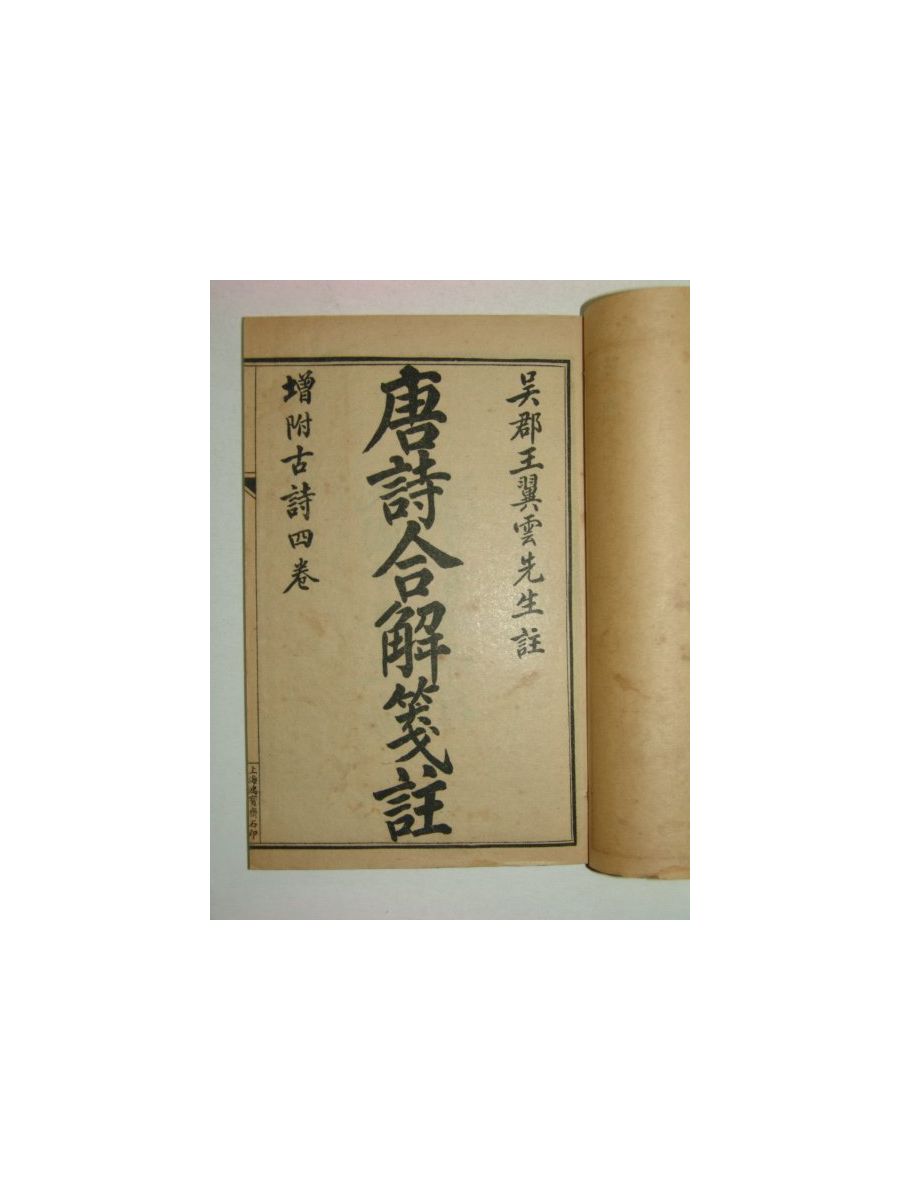 吴郡王翼雲先生註
唐詩合解箋註
增附古詩四卷
上海鴻寶齋石印